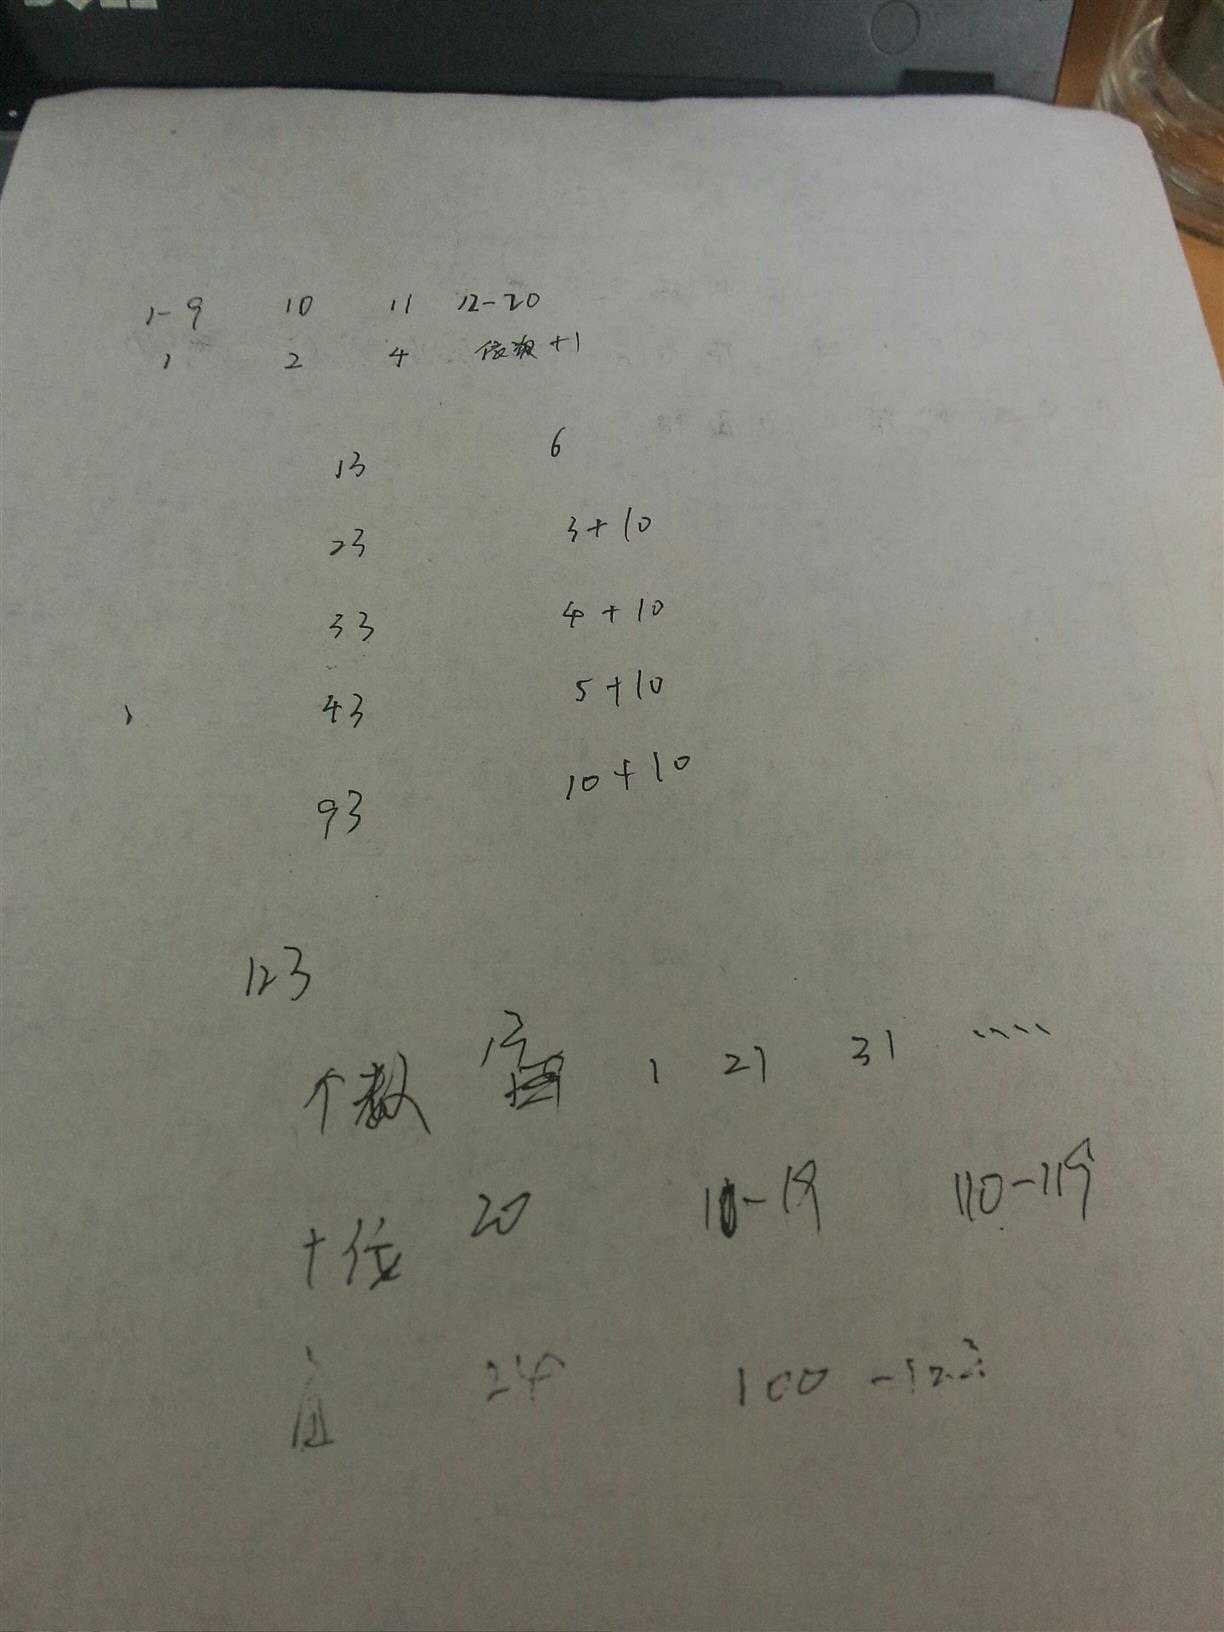 1-9 10 11 12-20
1 2 4 依次+1
13 6
23 3+10
33 4+10
43 5+10
93 10+10
123
个数 13 1 21 31 ····
十位 20 10-19 110-119
百 24 100-123